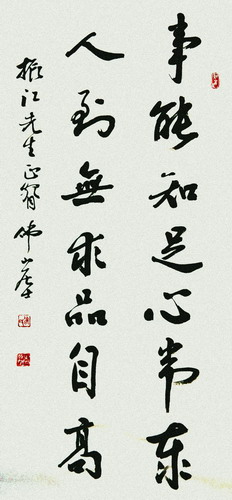 事能知足心常泰
人到無求品自高
振江先生正